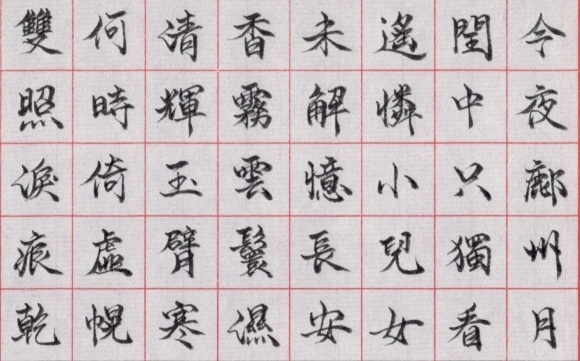 今夜鄜州月
閨中只獨看
遙憐小兒女
未解憶長安
香霧雲鬟濕
清輝玉臂寒
何時倚虛幌
雙照淚痕乾